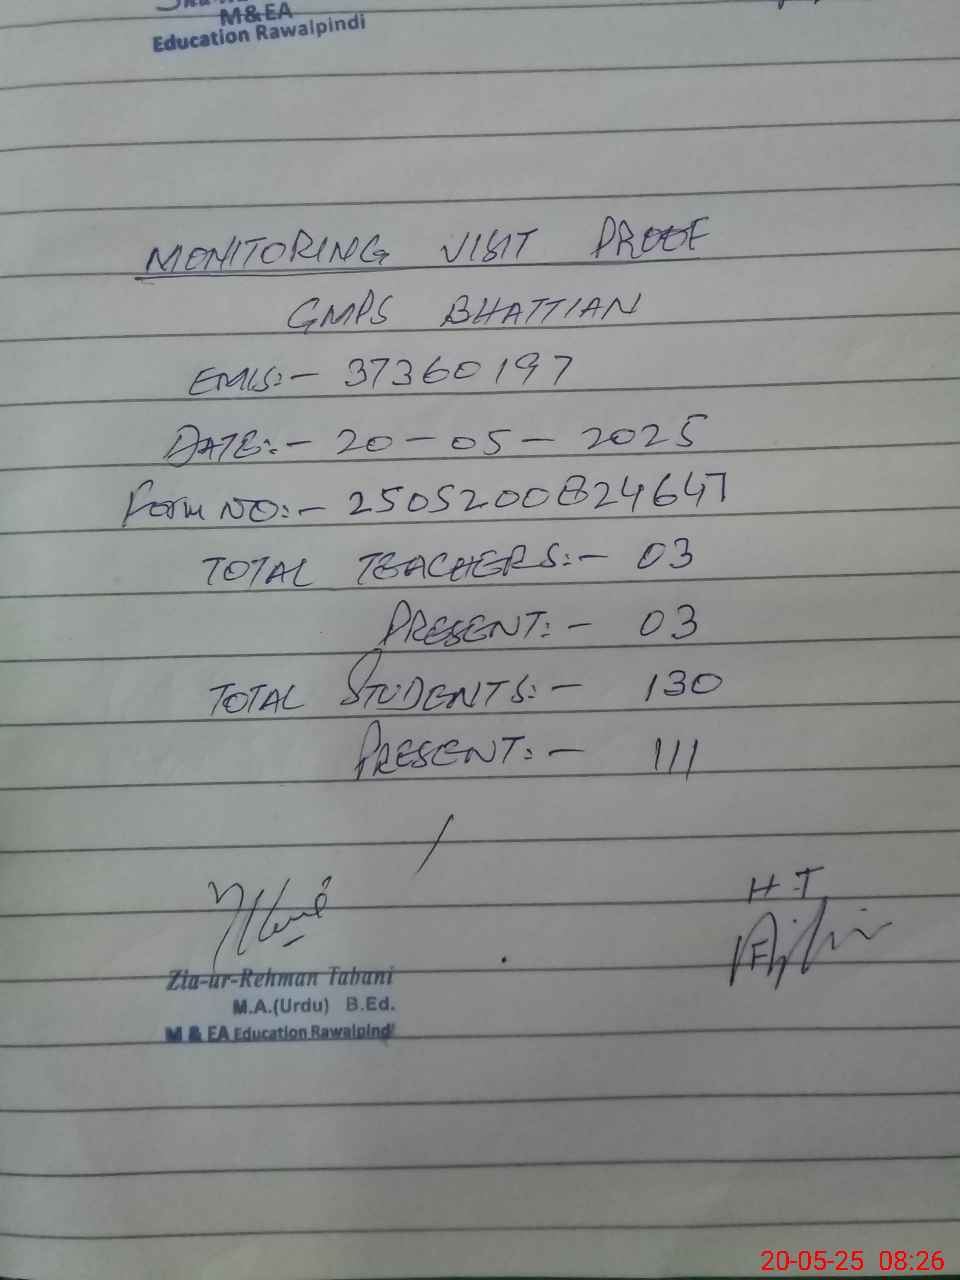 M&EA
Education Rawalpindi
MONITORING VISIT PROOF
GMPS BHATTIAN
EMIS:- 37360197
DATE:- 20-05-2025
Form NO:- 250520082464​7
TOTAL TEACHERS:- 03
PRESENT:- 03
TOTAL STUDENTS:- 130
PRESENT:- 111
H.T
Zia-ur-Rehman Tabani
M.A.(Urdu) B.Ed.
M & EA Education Rawalpindi
20-05-25 08:26